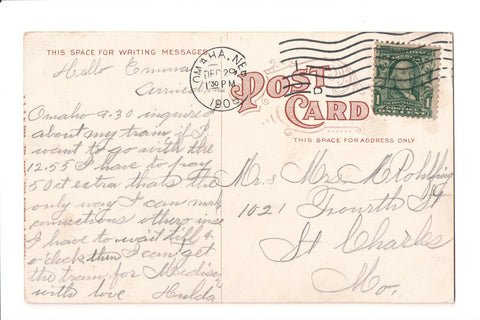 THIS SPACE FOR WRITING MESSAGES
Hello Emma
Arrived in
Omaho 9.30 inquired
about my train, if I
want to go with the
12.55 I have to pay
50 ct extra thats the
only way I can make
conections otherwise
I have to wait till 4
o'clock then I can get
the train for Madison
with love Hulda
OMAHA, NEB.
DEC 29
1:30 PM
1909
POST
CARD
THIS SPACE FOR ADDRESS ONLY
Mrs M Rohlfing
1021 Fourth St
St Charles
Mo.
1 1